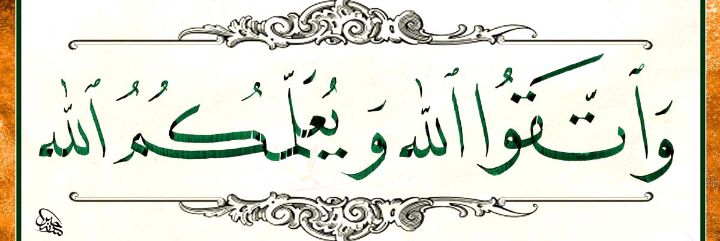 وَاتَّقُوا اللهَ وَيُعَلِّمُكُمُ اللهُ